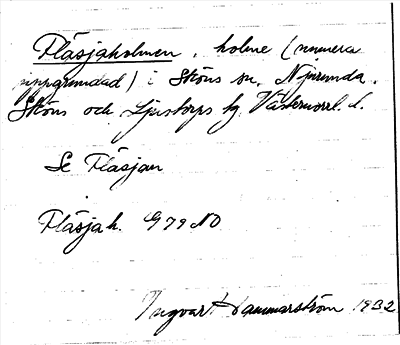 Fläsjaholmen, holme (numera
uppgrundad) i Sköns sn, Njurunda,
Sköns och Ljustorps tg. Västernorrl. l.
Se Fläsjan
Fläsjah. G 79 NO
Ingvar Hammarström 1932